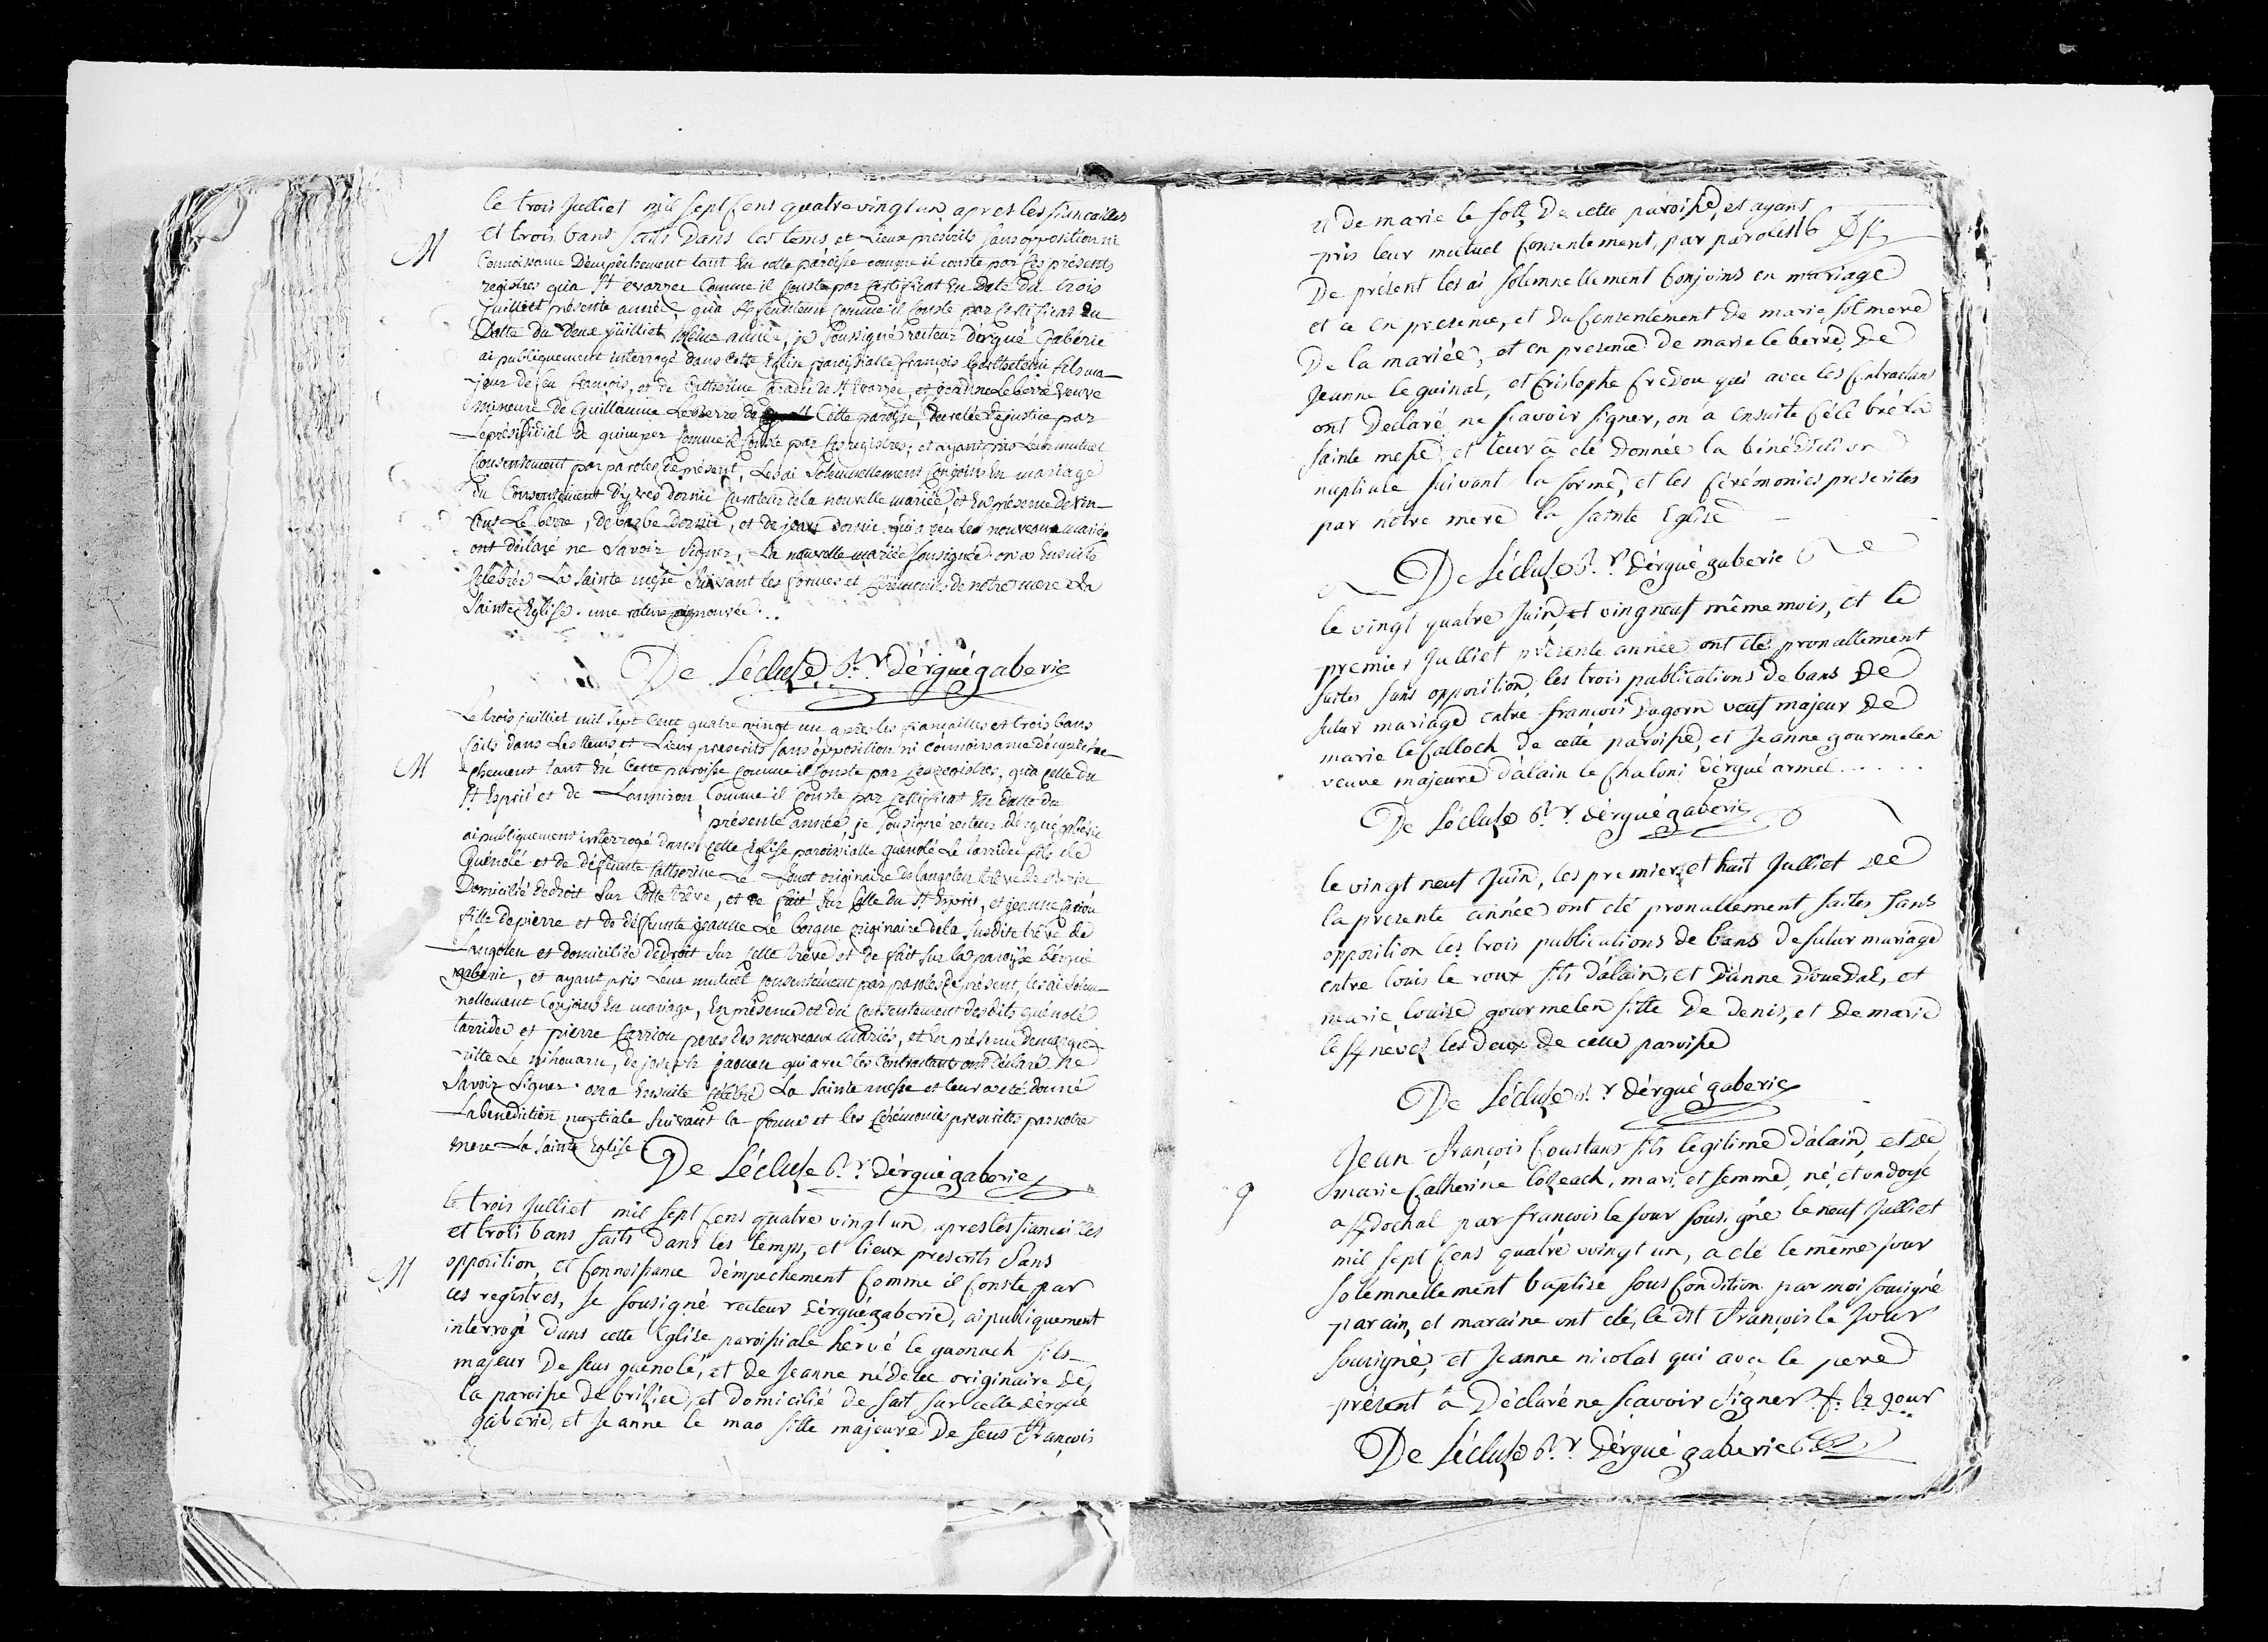 le trois Julliet mil sept cens quatre vingt un apres les fiancailles
et trois bans faits Dans les tems et Lieux prescrits sans opposition ni
M
Connoissance Dempêchement tant En cette paroisse comme il conste par ces présents
registres qu'a St evarzec Comme il Conste par Certificat En Date du trois
juilliet présente année, qu'a comme il conste par Certificat En
Datte du Deux juilliet même année, je soussigné recteur d'ergué Gabéric
ai publiquement interrogé dans cette Eglise paroissialle françois fils ma-
jeur de feu francois, et de Catherine de St Evarzec, et Le berre veuve
mineure de Guillaume Le Berre de Cette paroisse, decretée de justice par
Le présidial de quimper comme il Conste par Ces registres; et ayant pris Leur mutuel
Consentement par paroles de présent, Les ai solemnellement Conjoins En mariage
du Consentement d'yves dornic Curateur de la nouvelle mariée, et En présence de vin-
cent Le berre, de barbe dornic, et de jean dornic qui avec les nouveaux mariés
ont déclaré ne Savoir signer, La nouvelle mariée sousignée. on a Ensuite
Célébrée La Sainte messe Suivant les formes et Cérémonies de notre mere La
Sainte Eglise. une rature approuvée...
De Lécluse Sr. r. d'érgué gaberic
Le trois juilliet mil sept Cent quatre vingt un après les fiançailles et trois bans
faits dans Les tems et Lieux prescrits sans opposition ni connoissance d'empé-
M
chement tant En Cette paroisse comme il Conste par Ces registres, qu'a celle du
St Esprit et de Comme il Conste par Certificat En datte du
présente année, je sousigné recteur d'ergué gabéric
ai publiquement interrogé dans cette Eglise paroissialle guénolé Le tarridec fils de
Guénolé et de défunte Catherine Le originaire de langolen trêve de
Domicilié de droit sur Cette trêve, et de fait sur Celle du St Esprit, et jeanne Carriou
fille de pierre et de défunte jeanne Le borgne originaire de la susdite trêve de
Langolen et domiciliée de droit sur Cette trêve et de fait sur la paroisse d'ergué
gaberic, et ayant pris Leur mutuel consentement par paroles de présent, les ai solem-
nellement Conjoins En mariage, En présence et du Consentement desdits guénolé
tarridec et pierre Carriou peres des nouveaux mariés, et En présence de margue-
ritte Le nihouarn, de joseph jaouen qui avec les Contractants ont déclaré ne
Savoir Signer. on a Ensuite célébré La Sainte messe et leur a eté donné
La benediction nuptiale Suivant la forme et les Cérémonies prescrites par notre
mere La Sainte Eglise
De Lécluse Sr. r. d'érgué gaberic
le trois Julliet mil sept cens quatre vingt un, apres les fiancailles
et trois bans faits Dans les temps, et lieux prescrits Sans
M
opposition, et Connoissance d'émpechement Comme il Conste par
ces registres, Je sousigné recteur d'érgué gaberic, ai publiquement
interrogé Dans cette Eglise paroissiale hervé le guonach fils
majeur De feus guénolé, et de Jeanne nédelec originaire de
la paroisse de briziec, et domicilié de fait sur celle dérgué
gaberic, et Jeanne le mao fille majeure De feus François
et de marie le soll, De cette paroisse, et ayant
pris leur mutuel Consentement, par paroles
De présent les ai solemnellement Conjoins en mariage
et ce en presence, et Du Consentement de marie sol mere
De la mariée, et en presence De marie le berre, De
Jeanne le guinal, et Cristophe Credou qui avec les Contractans
ont Declaré ne scavoir signer, on a ensuite Célébré la
Sainte messe et leur a eté Donnée la bénédiction
nuptiale suivant la forme, et les Cérémonies prescrites
par notre mere la sainte Eglise
De Lécluse Sr. r. dérgué gaberic
le vingt quatre Juin, et vingneuf même mois, et le
premier Julliet présente année ont eté pronallement
faites sans opposition, les trois publications de bans De
futur mariage entre francois Dagorn veuf majeur De
marie le Calloch de cette paroisse, et Jeanne gourmelen
veuve majeure d'alain le Chaloni dérgué armel.....
De Lécluse Sr. r. dérgué gaberic
le vingt neuf Juin, les premier, et huit Julliet De
la presente année ont eté pronallement faites sans
opposition les trois publications de bans de futur mariage
entre louis le roux fils d'alain, et D'anne Douedal, et
marie louise gourmelen fille De Denis, et De marie
le les Deux de cette paroisse
De Lécluse Sr. r dérgué gaberic
Jean François Coustans fils legitime d'alain, et de
marie Catherine lozeach, mari et femme, né, et ondoyé
9
a par francois le jour sousigné le neuf Julliet
mil sept cens quatre vingt un, a eté le même jour
solemnellement baptisé sous Condition par moi sousigné
parain, et maraine ont eté, le dit François le Jour
sousigné, et Jeanne nicolas qui avec le pere
présent a Déclaré ne scavoir signer f. le gour
De Lécluse Sr. r. Dérgué gaberic